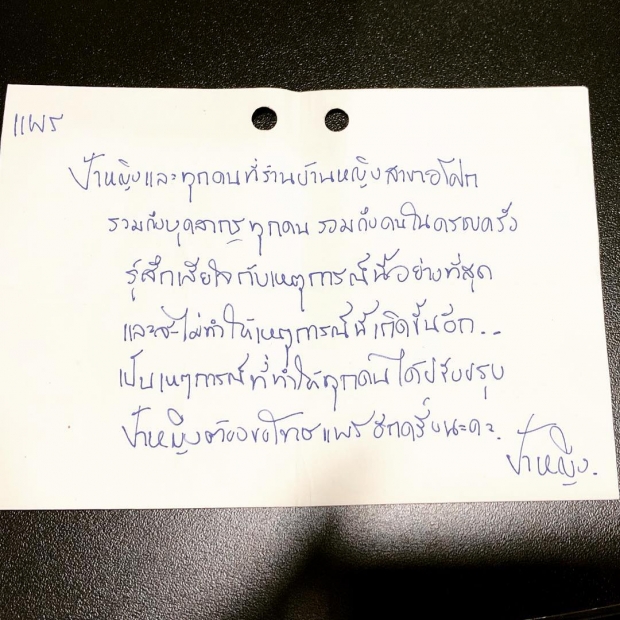 แพร
ป้าหญิงและทุกคนที่ร้านบ้านหญิงสาขาอโศก
รวมถึงบุคลากรทุกคน รวมถึงคนในครอบครัว
รู้สึกเสียใจกับเหตุการณ์นี้อย่างที่สุด
และจะไม่ทำให้เหตุการณ์นี้เกิดขึ้นอีก..
เป็นเหตุการณ์ที่ทำให้ทุกคนได้ปรับปรุง
ป้าหญิงต้องขอโทษแพรอีกครั้งนะคะ.
ป้าหญิง.